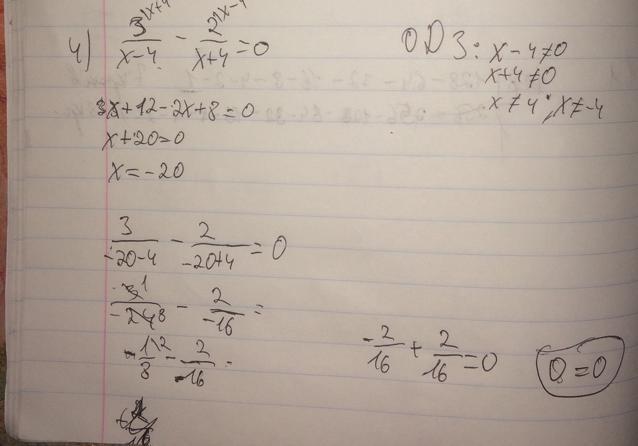 4) 3^(x+4)/(x-4) - 2^(x-4)/(x+4) = 0
ОДЗ: x-4≠0
x+4≠0
x≠4; x≠-4
3x+12-2x+8=0
x+20=0
x=-20
3/(-20-4) - 2/(-20+4) = 0
3^1/(-24 8) - 2/(-16) =
-1^2/8 - 2/(-16) =
-2/16 + 2/16 = 0
0=0